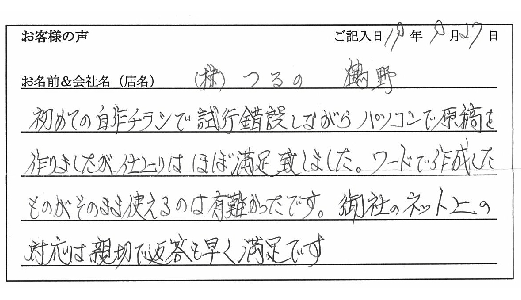 お客様の声 ご記入日 19年 9月27日
お名前&会社名（店名） (株) つるの 鶴野
初めての自作チラシで試行錯誤しながらパソコンで原稿を
作りましたが仕上りはほぼ満足致しました。ワードで作成した
ものがそのまま使えるのは有難かったです。御社のネット上の
対応は親切で返答も早く満足です